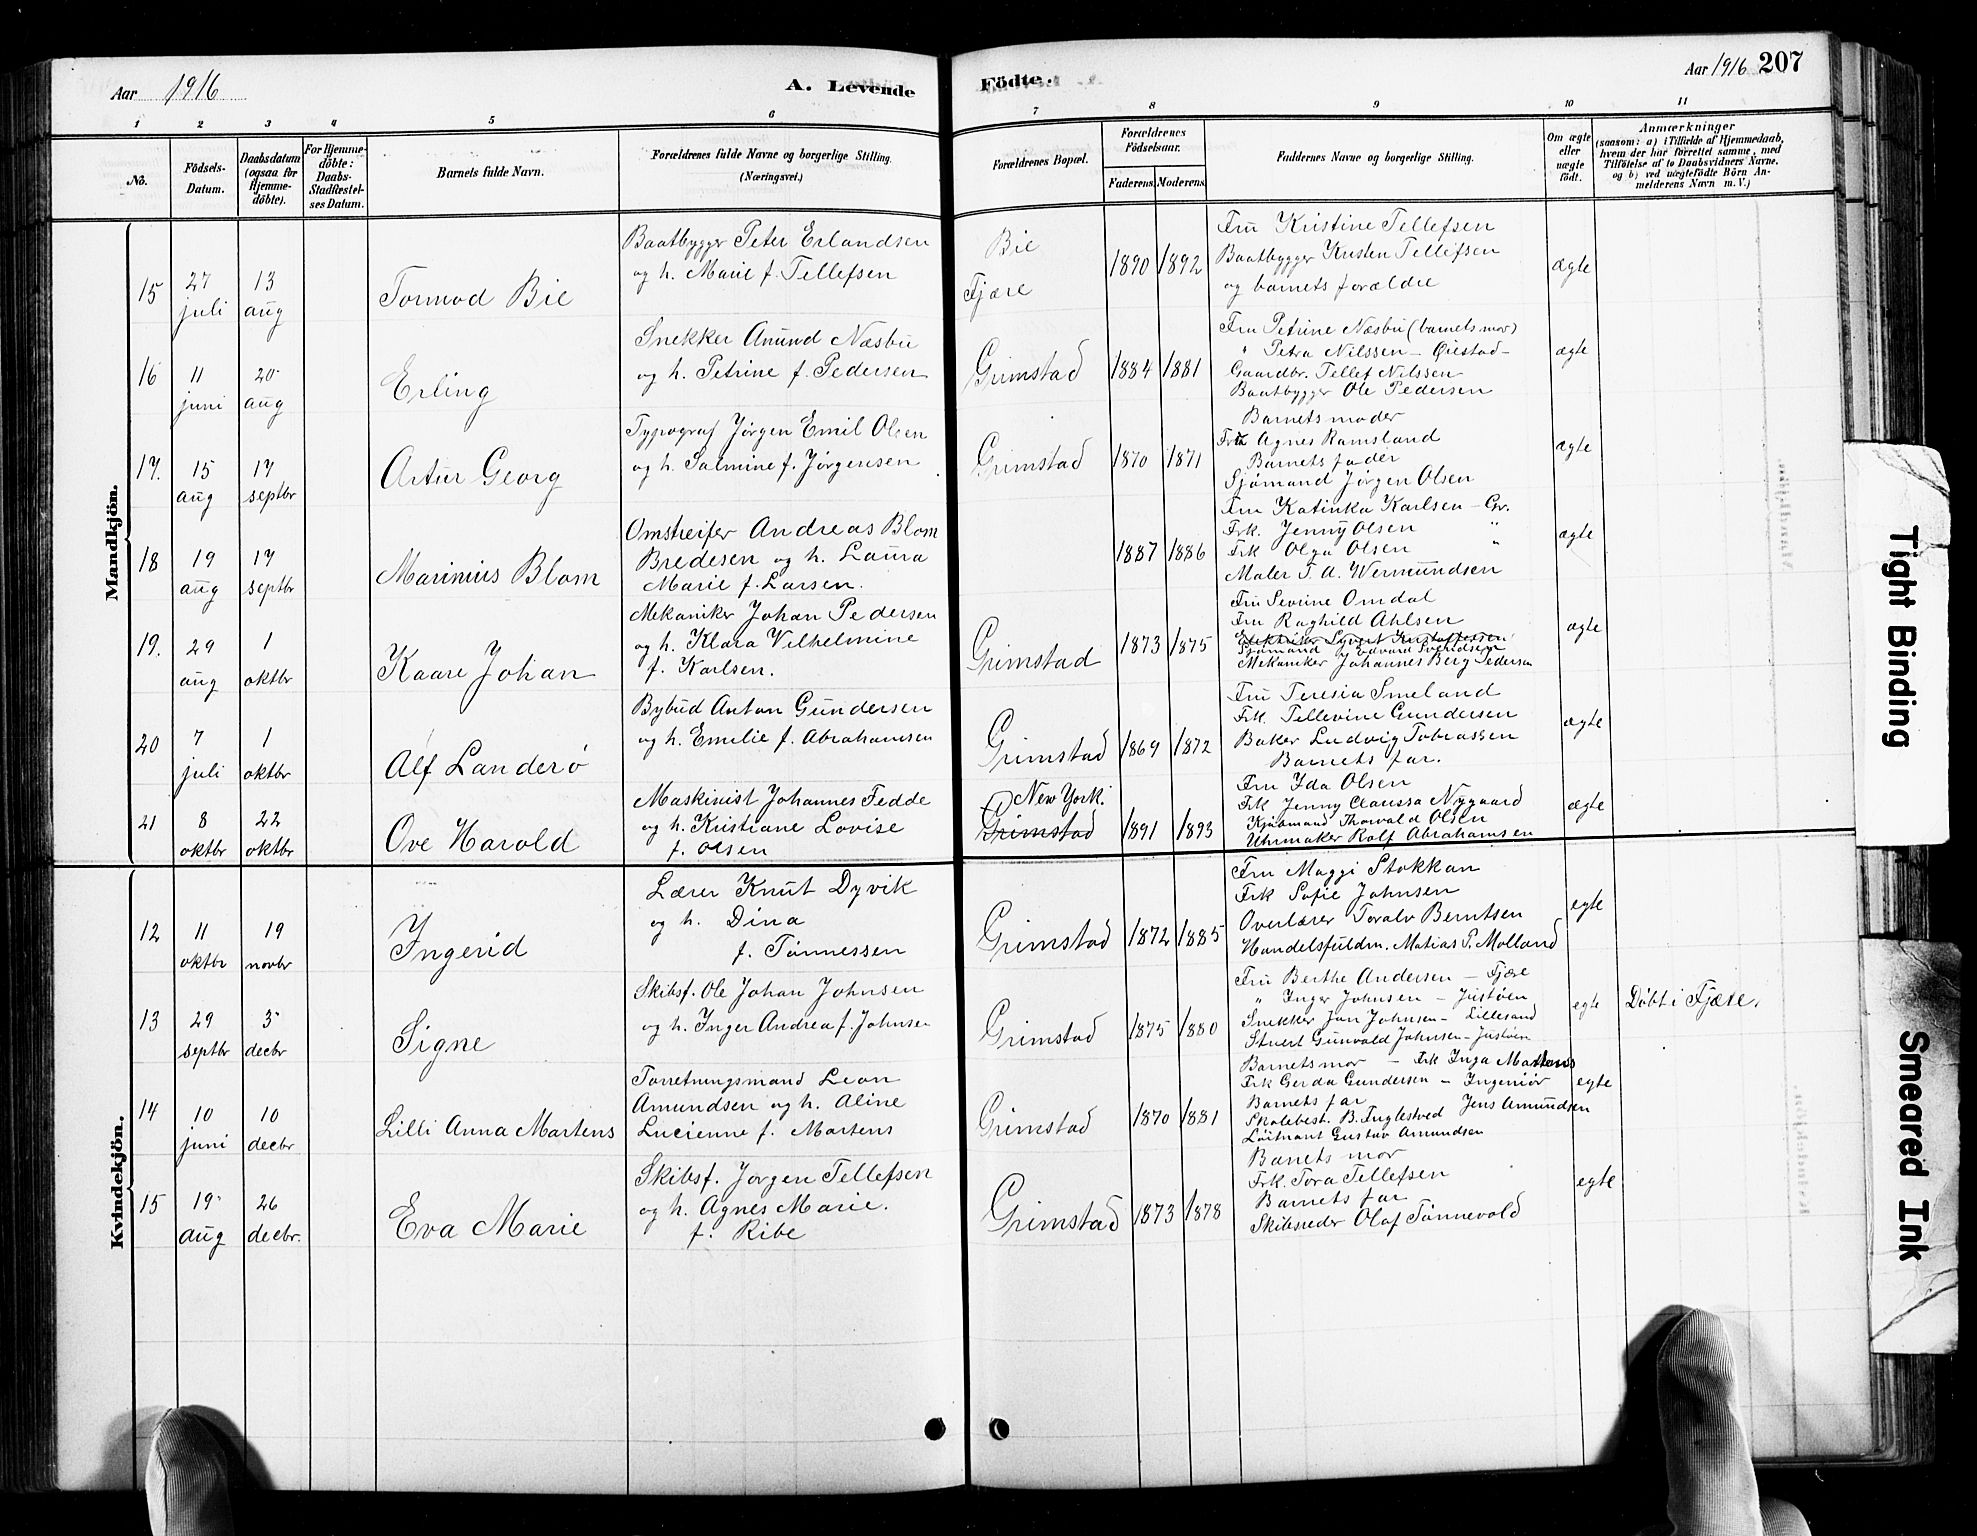 Aar 1916
A. Levende
Födte.
Aar 1916 207
1 2 3 4 5 6 7 8 9 10 11
No.
Födsels-
Datum.
Daabsdatum
(ogsaa for
Hjemme-
döbte).
For Hjemme-
döbte:
Daabs-
Stadfæstel-
ses Datum.
Barnets fulde Navn.
Forældrenes fulde Navne og borgerlige Stilling.
(Næringsvei.)
Forældrenes Bopæl.
Forældrenes
Födselsaar.
Faderens. Moderens.
Faddernes Navne og borgerlige Stilling.
Om ægte
eller
uægte
födt.
Anmærkninger
(saasom: a) i Tilfælde af Hjemmedaab,
hvem der har forrettet samme, med
Tilföielse af to Daabsvidners Navne.
og b) ved uægtefödte Börn An-
melderens Navn m. V.)
Mandkjön.
15
27
juli
13
aug
Tormod Bie
Baatbygger Peter Erlandsen
og h. Marie f. Tellefsen
Bie
Fjære
1890 1892
Fru Kristine Tellefsen
Baatbygger Kristen Tellefsen
og barnets forældre
ægte
16
11
juni
20
aug
Erling
Snekker Anund Næsbu
og h. Petrine f. Pedersen
Grimstad
1884 1881
Fru Petrine Næsbu (barnets mor)
" Petra Nilssen – Øiestad –
Gaardbr. Tellef Nilssen
Baatbygger Ole Pedersen
ægte
17.
15
aug
17
septbr
Artur Georg
Typograf Jørgen Emil Olsen
og h. Salmine f. Jørgensen
Grimstad
1870 1871
Barnets moder
Frk Agnes Ramsland
Barnets fader
Sjømand Jørgen Olsen
ægte
18
19
aug
17
septbr
Marinius Blom
Omstreifer Andreas Blom
Bredesen og h. Laura
Marie f. Larsen.
1887 1886
Fru Katinka Karlsen – Gr.
Frk. Jenny Olsen "
Frk Olga Olsen "
Maler T. A. Wermundsen
ægte
19.
29
aug
1
oktbr
Kaare Johan
Mekaniker Johan Pedersen
og h. Klara Vilhelmine
f. Karlsen.
Grimstad
1873 1875
Fru Sevrine Omdal
Fru Raghild Ahlsen
Elektriker Syvert Kristoffersen
Sjømand Edvard Svendsen
Mekaniker Johannes Berg Pedersen
ægte
20
7
juli
1
oktbr
Alf Landerø
Bybud Anton Gundersen
og h. Emilie f. Abrahamsen
Grimstad
1869 1872
Fru Teresia Smeland
Frk. Tellevine Gundersen
Baker Ludvig Tobiassen
Barnets far.
ægte
21
8
oktbr
22
oktbr
Ove Harold
Maskinist Johannes Fedde
og h. Kristiane Lovise
f. Olsen
New York.
Grimstad
1891 1893
Fru Ida Olsen
Frk Jenny Claussa Nygaard
Kjøbmand Thorvald Olsen
Uhrmaker Rolf Abrahamsen
ægte
Kvindekjön.
12
11
oktbr
19
novbr
Ingerid
Lærer Knut Dyvik
og h. Dina
f. Tønnessen
Grimstad
1872 1885
Fru Maggi Stokkan
Frk Sofie Johnsen
Overlærer Toralv Berntsen
Handelsfuldm. Matias P. Molland
egte
13
29
septbr
3
decbr
Signe
Skibsf. Ole Johan Johnsen
og h. Inger Andrea f. Johnsen
Grimstad
1875 1880
Fru Berthe Andersen – Fjære
" Inger Johnsen – Justøen
Snekker Jan Johnsen – Lillesand
Stuert Gunvald Johnsen – Justøen
egte
Døbt i Fjære.
14
10
juni
10
decbr
Lilli Anna Martens
Forretningsmand Leon
Amundsen og h. Aline
Lucienne f. Martens
Grimstad
1870 1881
Barnets mor – Frk Inga Martens
Frk Gerda Gundersen – Ingeniør
Barnets far Jens Amundsen
Skolebest. B. Fuglestved
Løitnant Gustav Amundsen
egte
15
19
aug
26
decbr.
Eva Marie
Skibsf. Jørgen Tellefsen
og h. Agnes Marie.
f. Ribe
Grimstad
1873 1878
Barnets mor
Frk. Tora Tellefsen
Barnets far
Skibsreder Olaf Tønnevold
egte
Tight Binding
Smeared Ink